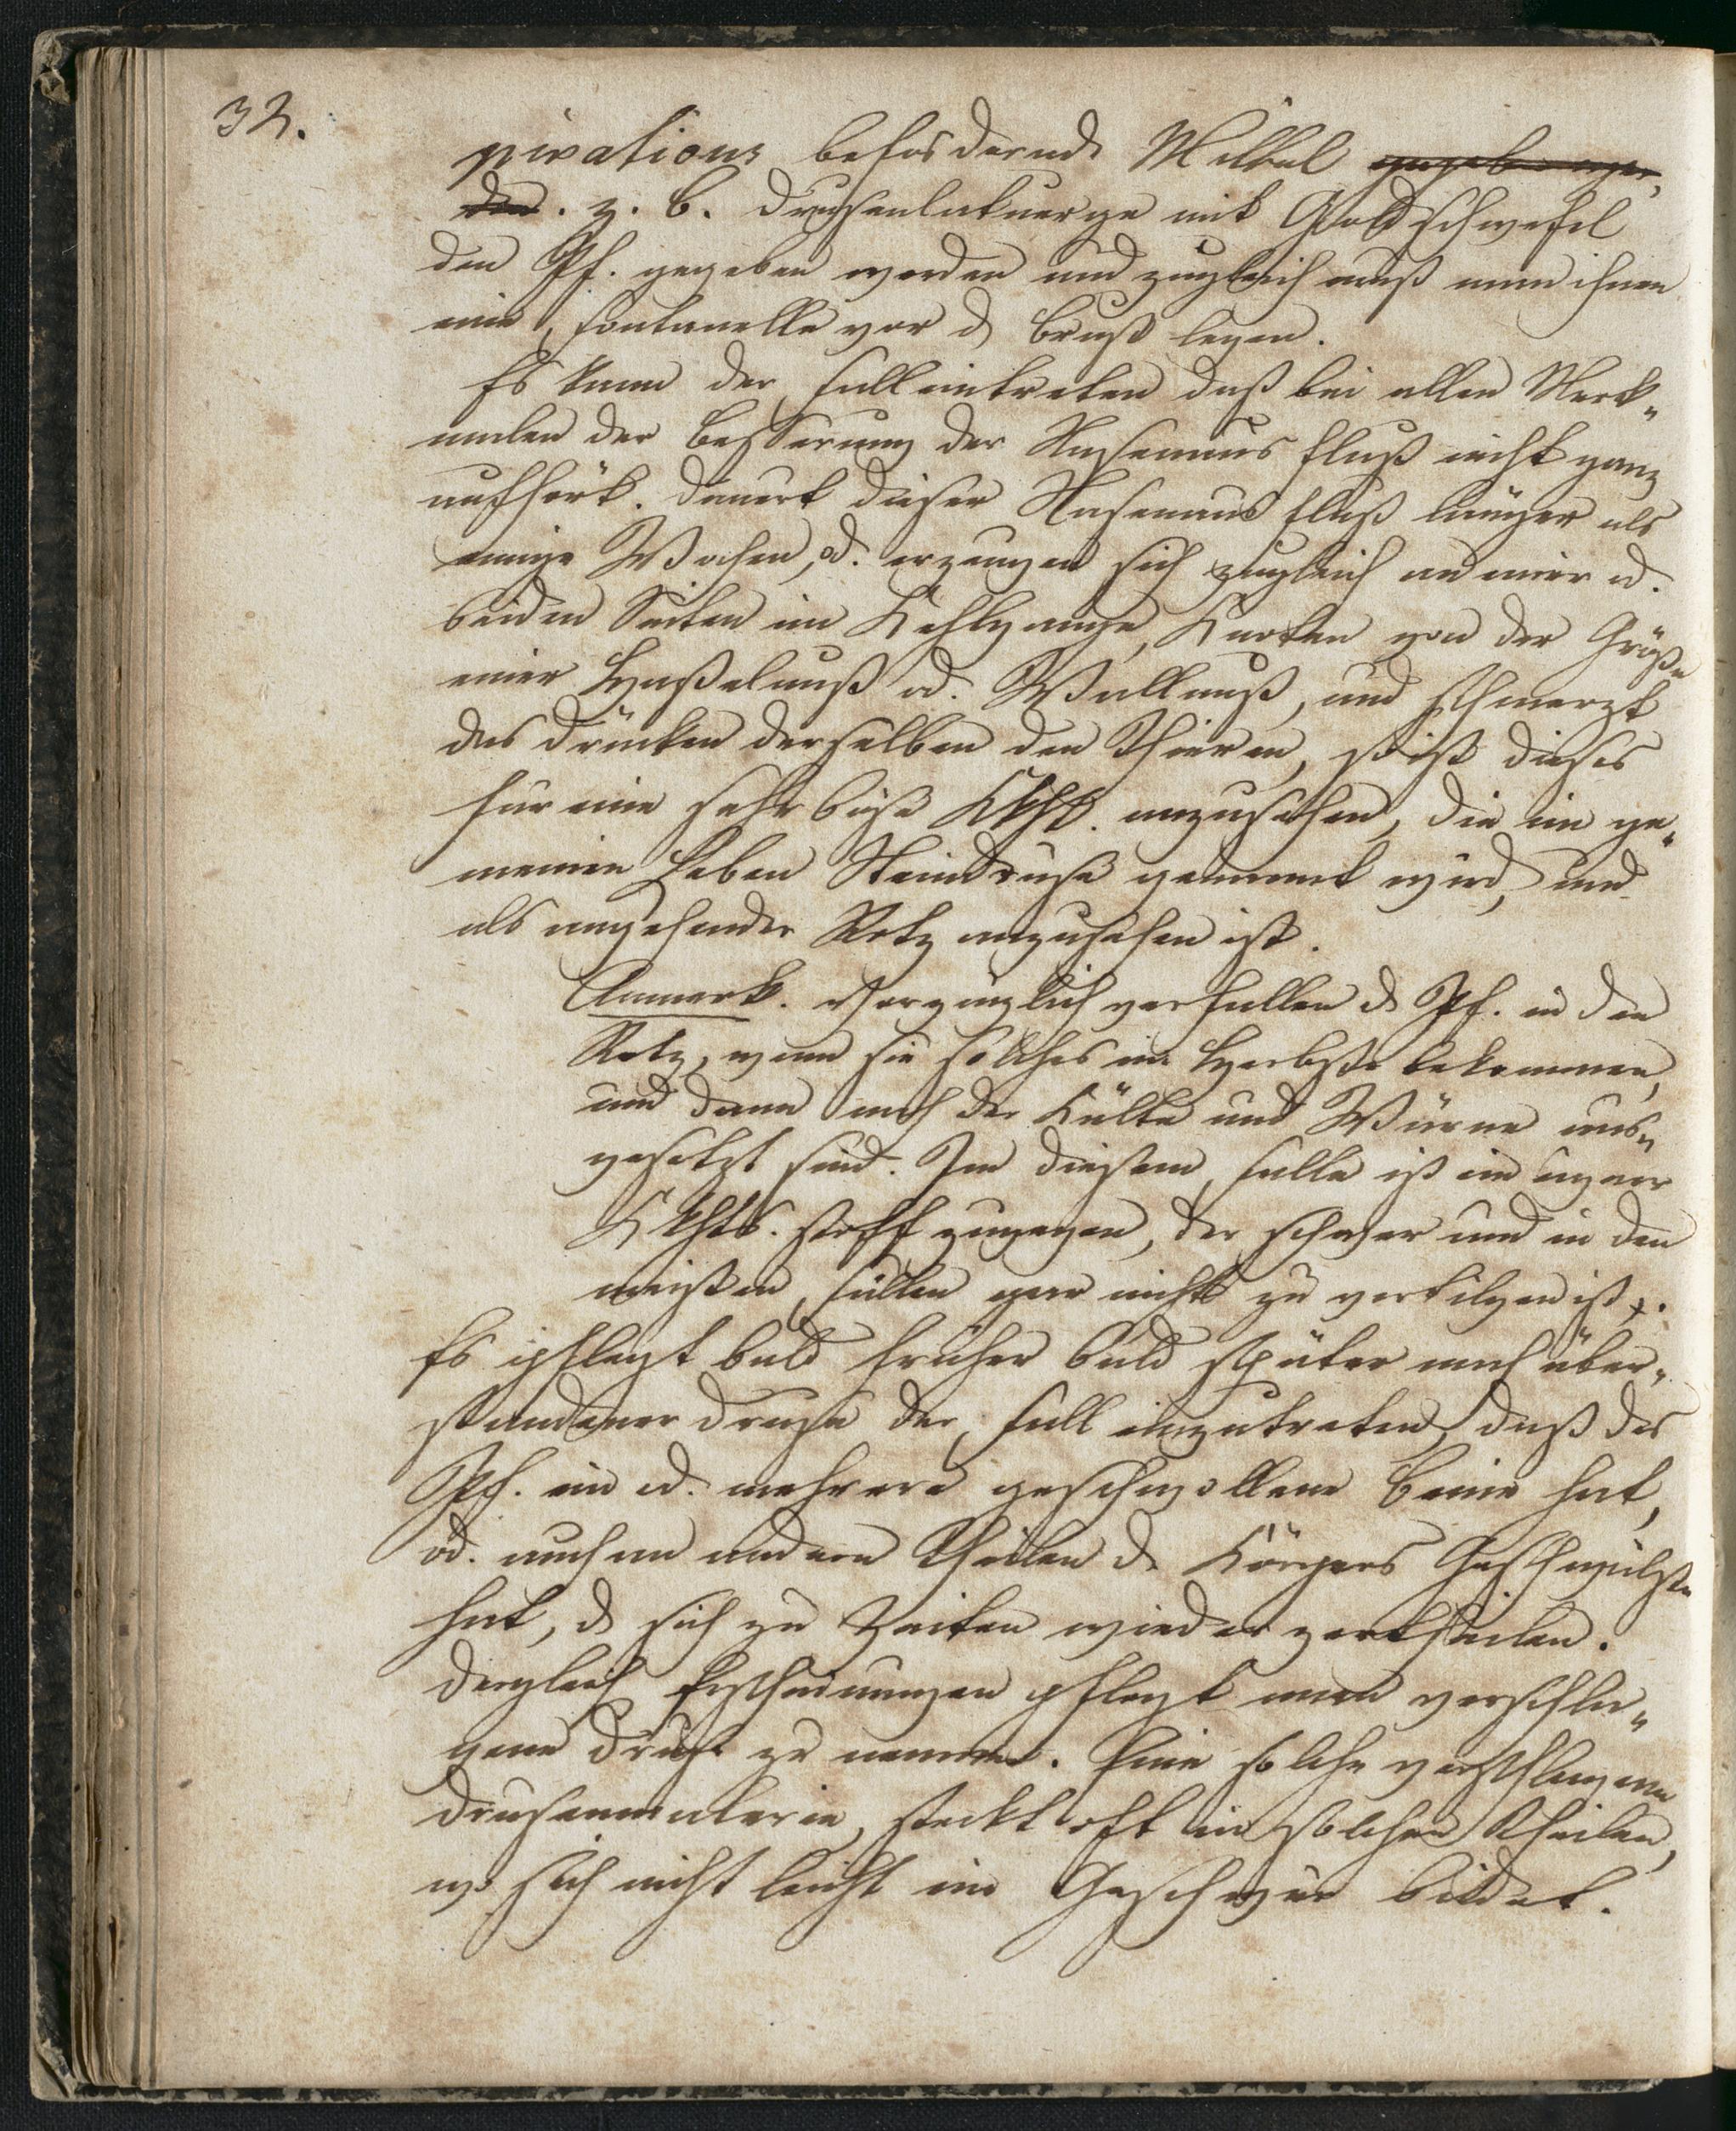 32.
pirations befördernde Mittel gegeben wer,
den. z. B. Drusenlatwerge mit Goldschwefel
den Pf. gegeben werden und zugleich muß man ihnen
eine Fontanelle vor d Brust legen.
Es kann der Fall eintreten daß bei allen Merk„
malen der Besserung der Nasenausfluß nicht ganz
aufhört. Dauert dieser Nasenausfluß länger als
einige Wochen, od. erzeugen sich zugleich an einer od.
beiden Seiten im Kehlgange, Knoten von der Größe
einer Haßelnuß od. Wallnuß, und schmerzt
das Drücken derselben den Thieren, so ist dieses
für eine sehr böse Kkht. anzusehen, die im ge„
meinen Leben Steindruse genannt wird, und
als angehender Rotz anzusehen ist.
Anmerk. Vorzüglich verfallen d Pf. in den
Rotz, wenn sie solches im Herbste bekommen,
und dann auch der Kälte und Wärme aus„
gesetzt sind. In diesem Falle ist ein eigner
Kkhts. stoff zugegen, der schwer und in den
meisten Fällen gar nicht zu vertilgen ist.
Es pflegt bald früher bald später nach über„
standener Druse der Fall einzutreten, daß das
Pf. ein od. mehrere geschwollene Beine hat,
od. auch an andern Theilen d Körpers Geschwülste
hat, d sich zu Zeiten wieder zertheilen.
Dergleich Erscheinungen pflegt man verschla„
gene Druse zu nennen. Eine solche verschlagene
Drusenmaterie, steckt oft in solchen Theilen,
wo sich nicht leicht ein Geschwür bildet.